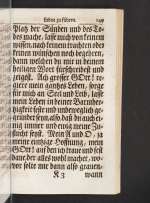 Leben zu führen. 149
Platz der Sünden und des To-
des mache. Lasse mich von keinem
wissen, nach keinem trachten oder
keinen wünschen noch begehren,
dann welchen du mir in deinem
heiligen Wort fürschreibest und
zeigest. Ach grosser GOtt! re-
giere mein gantzes Leben, sorge
für mich an Seel und Leib, lasse
mein Leben in deiner Barmher-
tzigkeit feste und unbeweglich ge-
gründet seyn, also, daß du auch e-
nig immer und ewig meine Zu-
flucht seyst. Mein A und O, ja
meine eintzige Hoffnung, mein
GOtt! auf den ich traue und fest
baue der alles wohl machet, wo-
vor solte mir dann also grauen,
K 3 wann